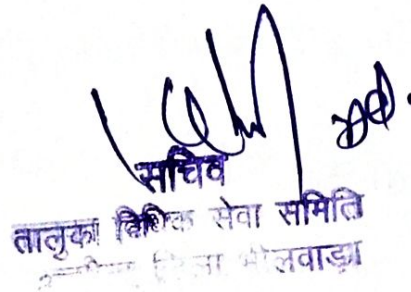 सचिव
तालुका विधिक सेवा समिति
जिला भीलवाड़ा